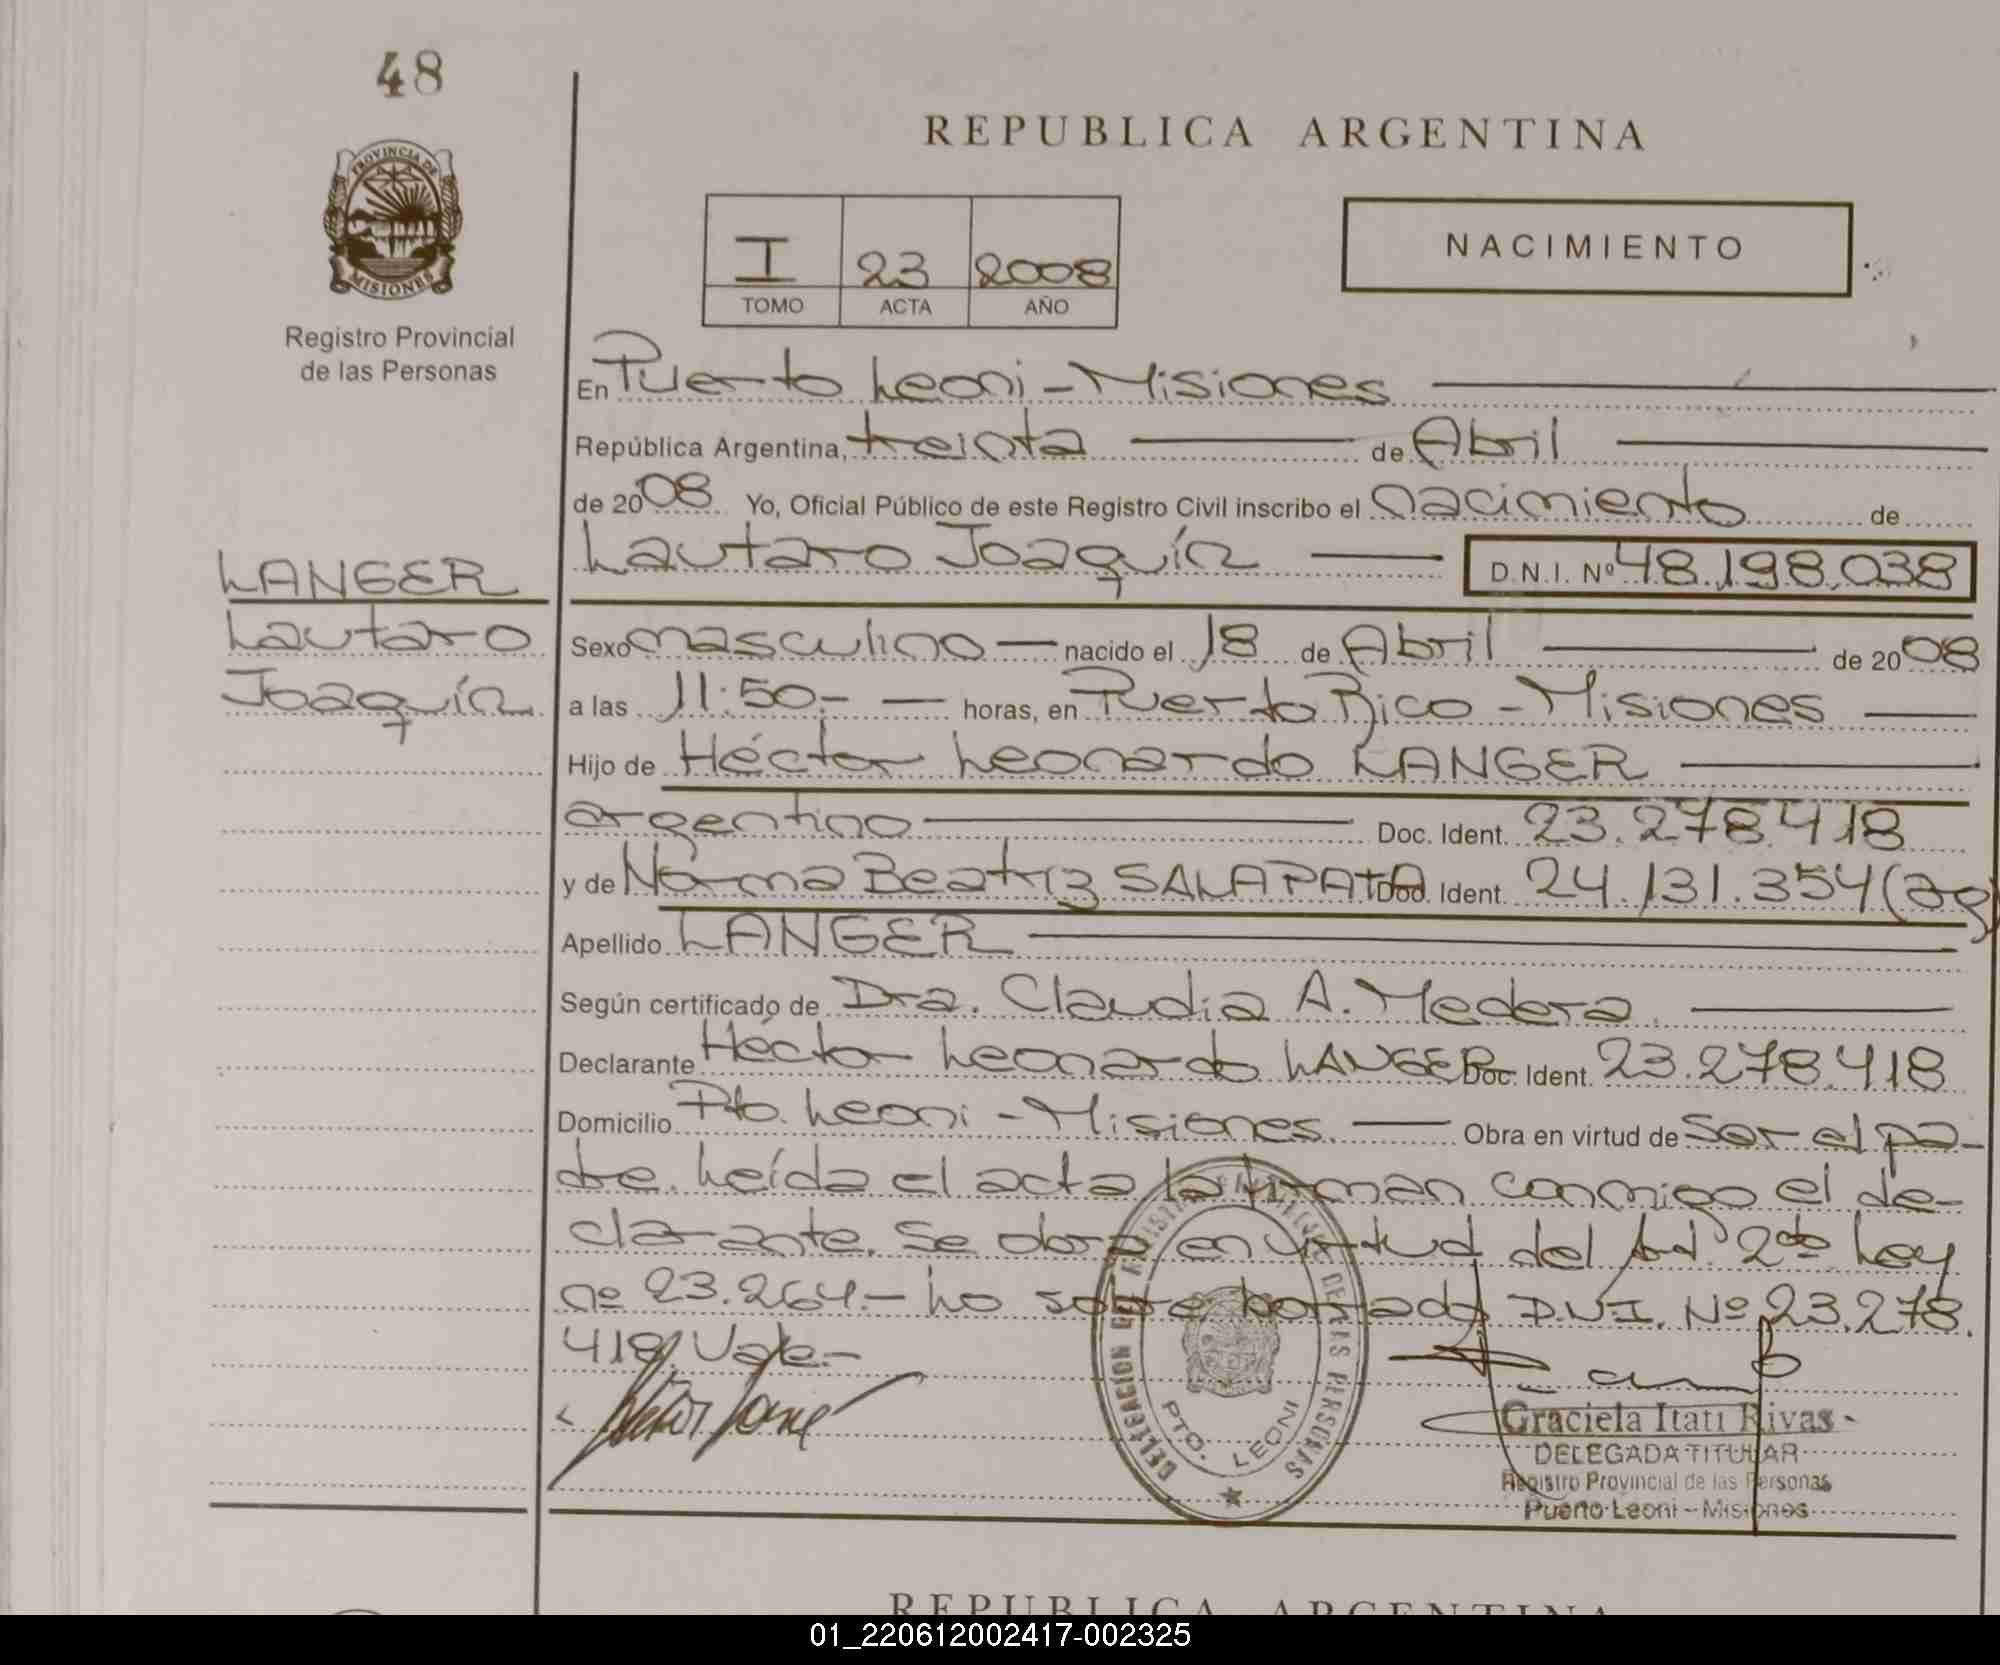 48
PROVINCIA DE
MISIONES
Registro Provincial
de las Personas
REPUBLICA ARGENTINA
I 23 2008
TOMO ACTA AÑO
NACIMIENTO
En Puerto Leoni - Misiones
República Argentina, treinta de Abril
de 2008 Yo, Oficial Público de este Registro Civil inscribo el nacimiento de
Lautaro Joaquín D.N.I. Nº 48.198.038
LANGER
Lautaro
Joaquín
Sexo masculino nacido el 18 de Abril de 2008
a las 11:50.- horas, en Puerto Rico - Misiones
Hijo de Héctor Leonardo LANGER
argentino Doc. Ident. 23.278.418
y de Norma Beatriz SALAPATA Doc. Ident. 24.131.354 (ag)
Apellido LANGER
Según certificado de Dra. Claudia A. Medera
Declarante Héctor Leonardo LANGER Doc. Ident. 23.278.418
Domicilio Pto. Leoni - Misiones. Obra en virtud de ser el pa-
dre. Leída el acta la firman conmigo el de-
clarante. Se obra en virtud del Art. 2do Ley
nº 23.264.- Lo sobre borrado D.N.I. Nº 23.278.
418. Vale.-
DELEGACION DEL REGISTRO PROVINCIAL DE LAS PERSONAS
PTO. LEONI
Graciela Itatí Rivas
DELEGADA TITULAR
Registro Provincial de las Personas
Puerto Leoni - Misiones
REPUBLICA ARGENTINA
01_220612002417-002325